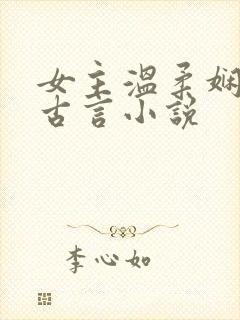 女主温柔娴
古言小说
李心如